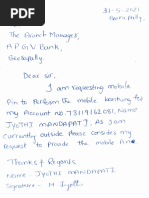 31-5-2021
The Branch Manager,
A P G V Bank,
Dear sir,
I am requesting mobile
Pin to Perform the mobile banking for
my Account no. 73119162081, Name
JYOTHI MANDAPATI. As Iam
Currently outside Please consider my
Request to Provide the mobile Pin.
Thanks & Regards
Name - JYOTHI MANDAPATI
Signature - M Jyothi